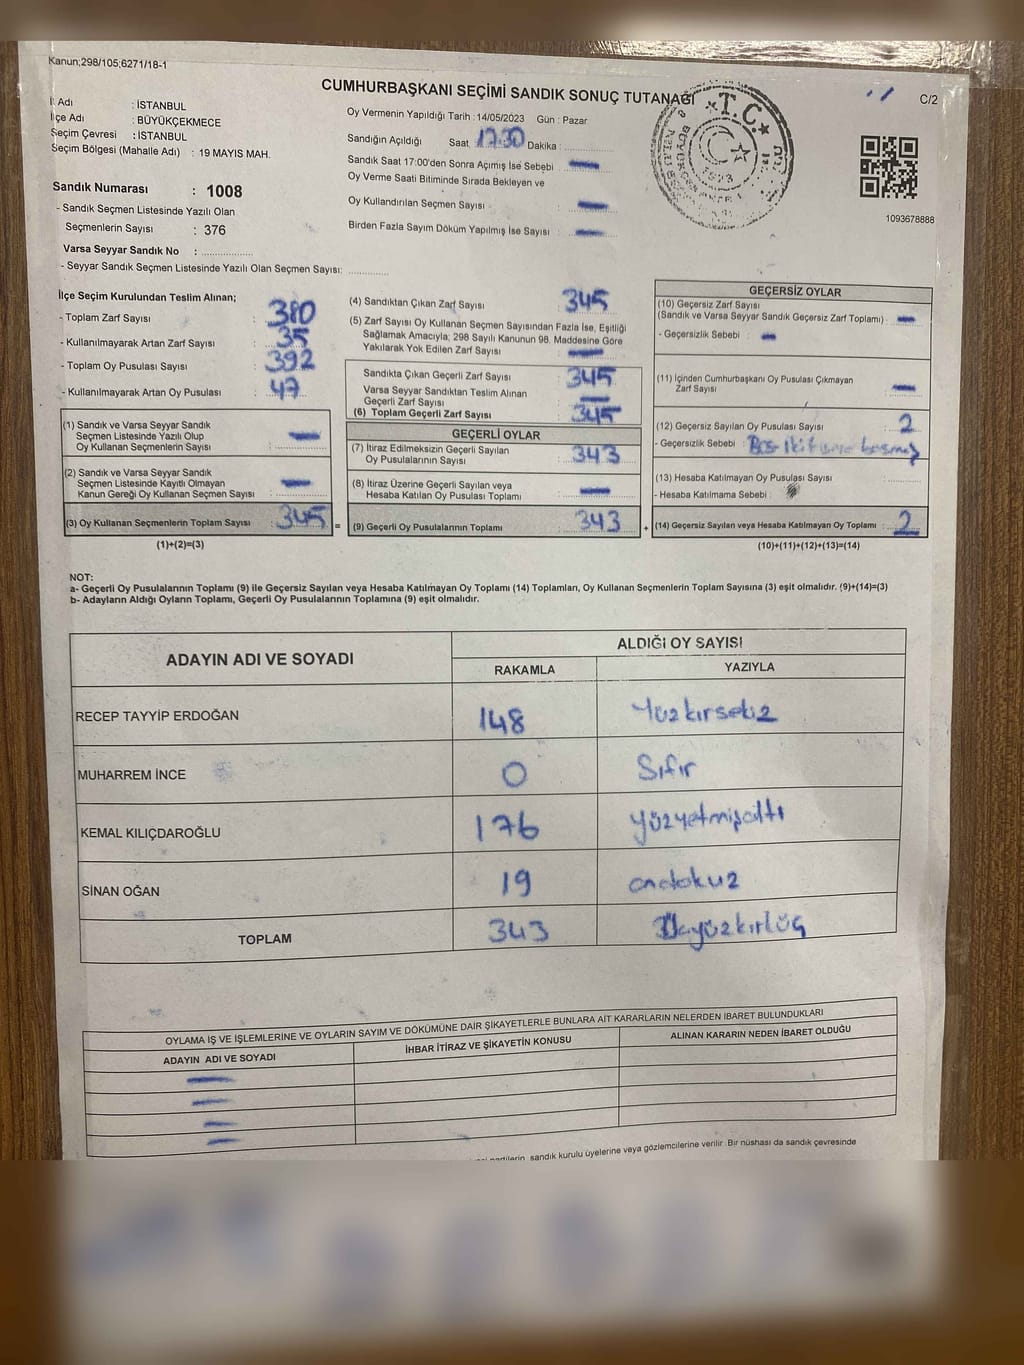 Kanun;298/105;6271/18-1
CUMHURBAŞKANI SEÇİMİ SANDIK SONUÇ TUTANAĞI
C/2
İl Adı : İSTANBUL
İlçe Adı : BÜYÜKÇEKMECE
Seçim Çevresi : İSTANBUL
Seçim Bölgesi (Mahalle Adı) : 19 MAYIS MAH.
Sandık Numarası : 1008
- Sandık Seçmen Listesinde Yazılı Olan
Seçmenlerin Sayısı : 376
Varsa Seyyar Sandık No :
- Seyyar Sandık Seçmen Listesinde Yazılı Olan Seçmen Sayısı:
Oy Vermenin Yapıldığı Tarih : 14/05/2023 Gün : Pazar
Sandığın Açıldığı Saat 17:30 Dakika :
Sandık Saat 17:00'den Sonra Açımış İse Sebebi : —
Oy Verme Saati Bitiminde Sırada Bekleyen ve
Oy Kullandırılan Seçmen Sayısı : —
Birden Fazla Sayım Döküm Yapılmış İse Sayısı : —
T.C.
1093678888
İlçe Seçim Kurulundan Teslim Alınan;
- Toplam Zarf Sayısı : 380
- Kullanılmayarak Artan Zarf Sayısı : 35
- Toplam Oy Pusulası Sayısı : 392
- Kullanılmayarak Artan Oy Pusulası : 47
(1) Sandık ve Varsa Seyyar Sandık
Seçmen Listesinde Yazılı Olup
Oy Kullanan Seçmenlerin Sayısı : —
(2) Sandık ve Varsa Seyyar Sandık
Seçmen Listesinde Kayıtlı Olmayan
Kanun Gereği Oy Kullanan Seçmen Sayısı : —
(3) Oy Kullanan Seçmenlerin Toplam Sayısı : 345 =
(1)+(2)=(3)
(4) Sandıktan Çıkan Zarf Sayısı : 345
(5) Zarf Sayısı Oy Kullanan Seçmen Sayısından Fazla İse, Eşitliği
Sağlamak Amacıyla; 298 Sayılı Kanunun 98. Maddesine Göre
Yakılarak Yok Edilen Zarf Sayısı : —
Sandıkta Çıkan Geçerli Zarf Sayısı : 345
Varsa Seyyar Sandıktan Teslim Alınan
Geçerli Zarf Sayısı : —
(6) Toplam Geçerli Zarf Sayısı : 345
GEÇERLİ OYLAR
(7) İtiraz Edilmeksizin Geçerli Sayılan
Oy Pusulalarının Sayısı : 343
(8) İtiraz Üzerine Geçerli Sayılan veya
Hesaba Katılan Oy Pusulası Toplamı : —
(9) Geçerli Oy Pusulalarının Toplamı : 343 +
GEÇERSİZ OYLAR
(10) Geçersiz Zarf Sayısı
(Sandık ve Varsa Seyyar Sandık Geçersiz Zarf Toplamı) : —
- Geçersizlik Sebebi : —
(11) İçinden Cumhurbaşkanı Oy Pusulası Çıkmayan
Zarf Sayısı : —
(12) Geçersiz Sayılan Oy Pusulası Sayısı : 2
- Geçersizlik Sebebi :
(13) Hesaba Katılmayan Oy Pusulası Sayısı :
- Hesaba Katılmama Sebebi :
(14) Geçersiz Sayılan veya Hesaba Katılmayan Oy Toplamı : 2
(10)+(11)+(12)+(13)=(14)
NOT:
a- Geçerli Oy Pusulalarının Toplamı (9) ile Geçersiz Sayılan veya Hesaba Katılmayan Oy Toplamı (14) Toplamları, Oy Kullanan Seçmenlerin Toplam Sayısına (3) eşit olmalıdır. (9)+(14)=(3)
b- Adayların Aldığı Oyların Toplamı, Geçerli Oy Pusulalarının Toplamına (9) eşit olmalıdır.
ADAYIN ADI VE SOYADI
ALDIĞI OY SAYISI
RAKAMLA YAZIYLA
RECEP TAYYİP ERDOĞAN 148 Yüzkırsekiz
MUHARREM İNCE 0 Sıfır
KEMAL KILIÇDAROĞLU 176 yüzyetmişaltı
SİNAN OĞAN 19 ondokuz
TOPLAM 343 Üçyüzkırküç
OYLAMA İŞ VE İŞLEMLERİNE VE OYLARIN SAYIM VE DÖKÜMÜNE DAİR ŞİKAYETLERLE BUNLARA AİT KARARLARIN NELERDEN İBARET BULUNDUKLARI
ADAYIN ADI VE SOYADI İHBAR İTİRAZ VE ŞİKAYETİN KONUSU ALINAN KARARIN NEDEN İBARET OLDUĞU
sandık kurulu üyelerine veya gözlemcilerine verilir. Bir nüshası da sandık çevresinde